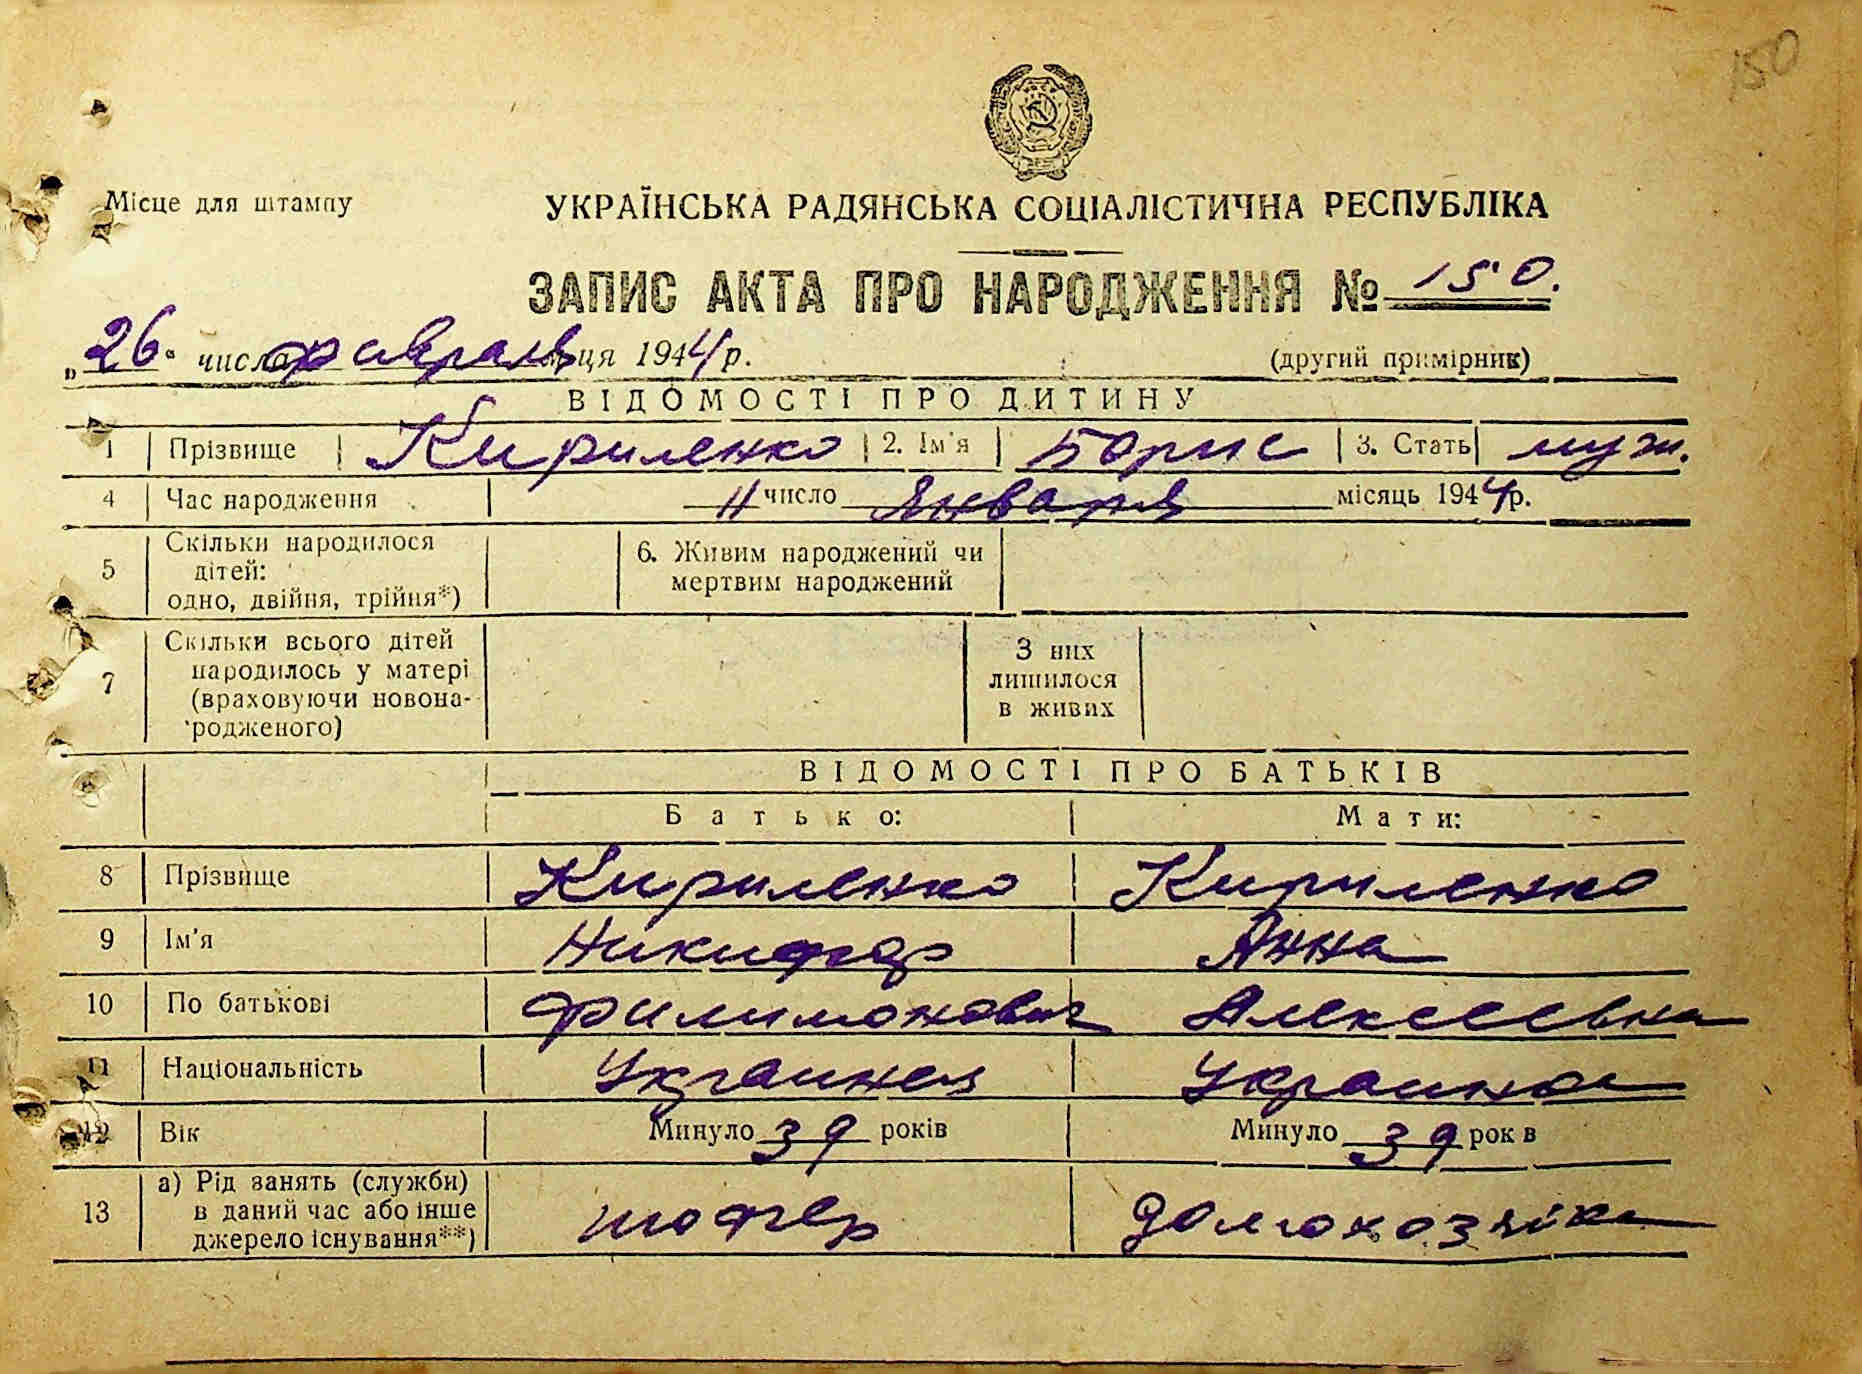 150
Місце для штампу
УКРАЇНСЬКА РАДЯНСЬКА СОЦІАЛІСТИЧНА РЕСПУБЛІКА
ЗАПИС АКТА ПРО НАРОДЖЕННЯ № 150.
„26" числа февраля місяця 1944 р.
(другий примірник)
ВІДОМОСТІ ПРО ДИТИНУ
1 Прізвище Кириленко 2. Ім'я Борис 3. Стать муж.
4 Час народження 11 число Января місяць 1944 р.
5 Скільки народилося дітей: одно, двійня, трійня*) 6. Живим народжений чи мертвим народжений
7 Скільки всього дітей народилось у матері (враховуючи новонародженого) З них лишилося в живих
ВІДОМОСТІ ПРО БАТЬКІВ
Батько: Мати:
8 Прізвище Кириленко Кириленко
9 Ім'я Никифор Анна
10 По батькові Филимонович Алексеевна
11 Національність Украинец Украинка
12 Вік Минуло 39 років Минуло 39 рок в
13 а) Рід занять (служби) в даний час або інше джерело існування**) шофер домохозяйка